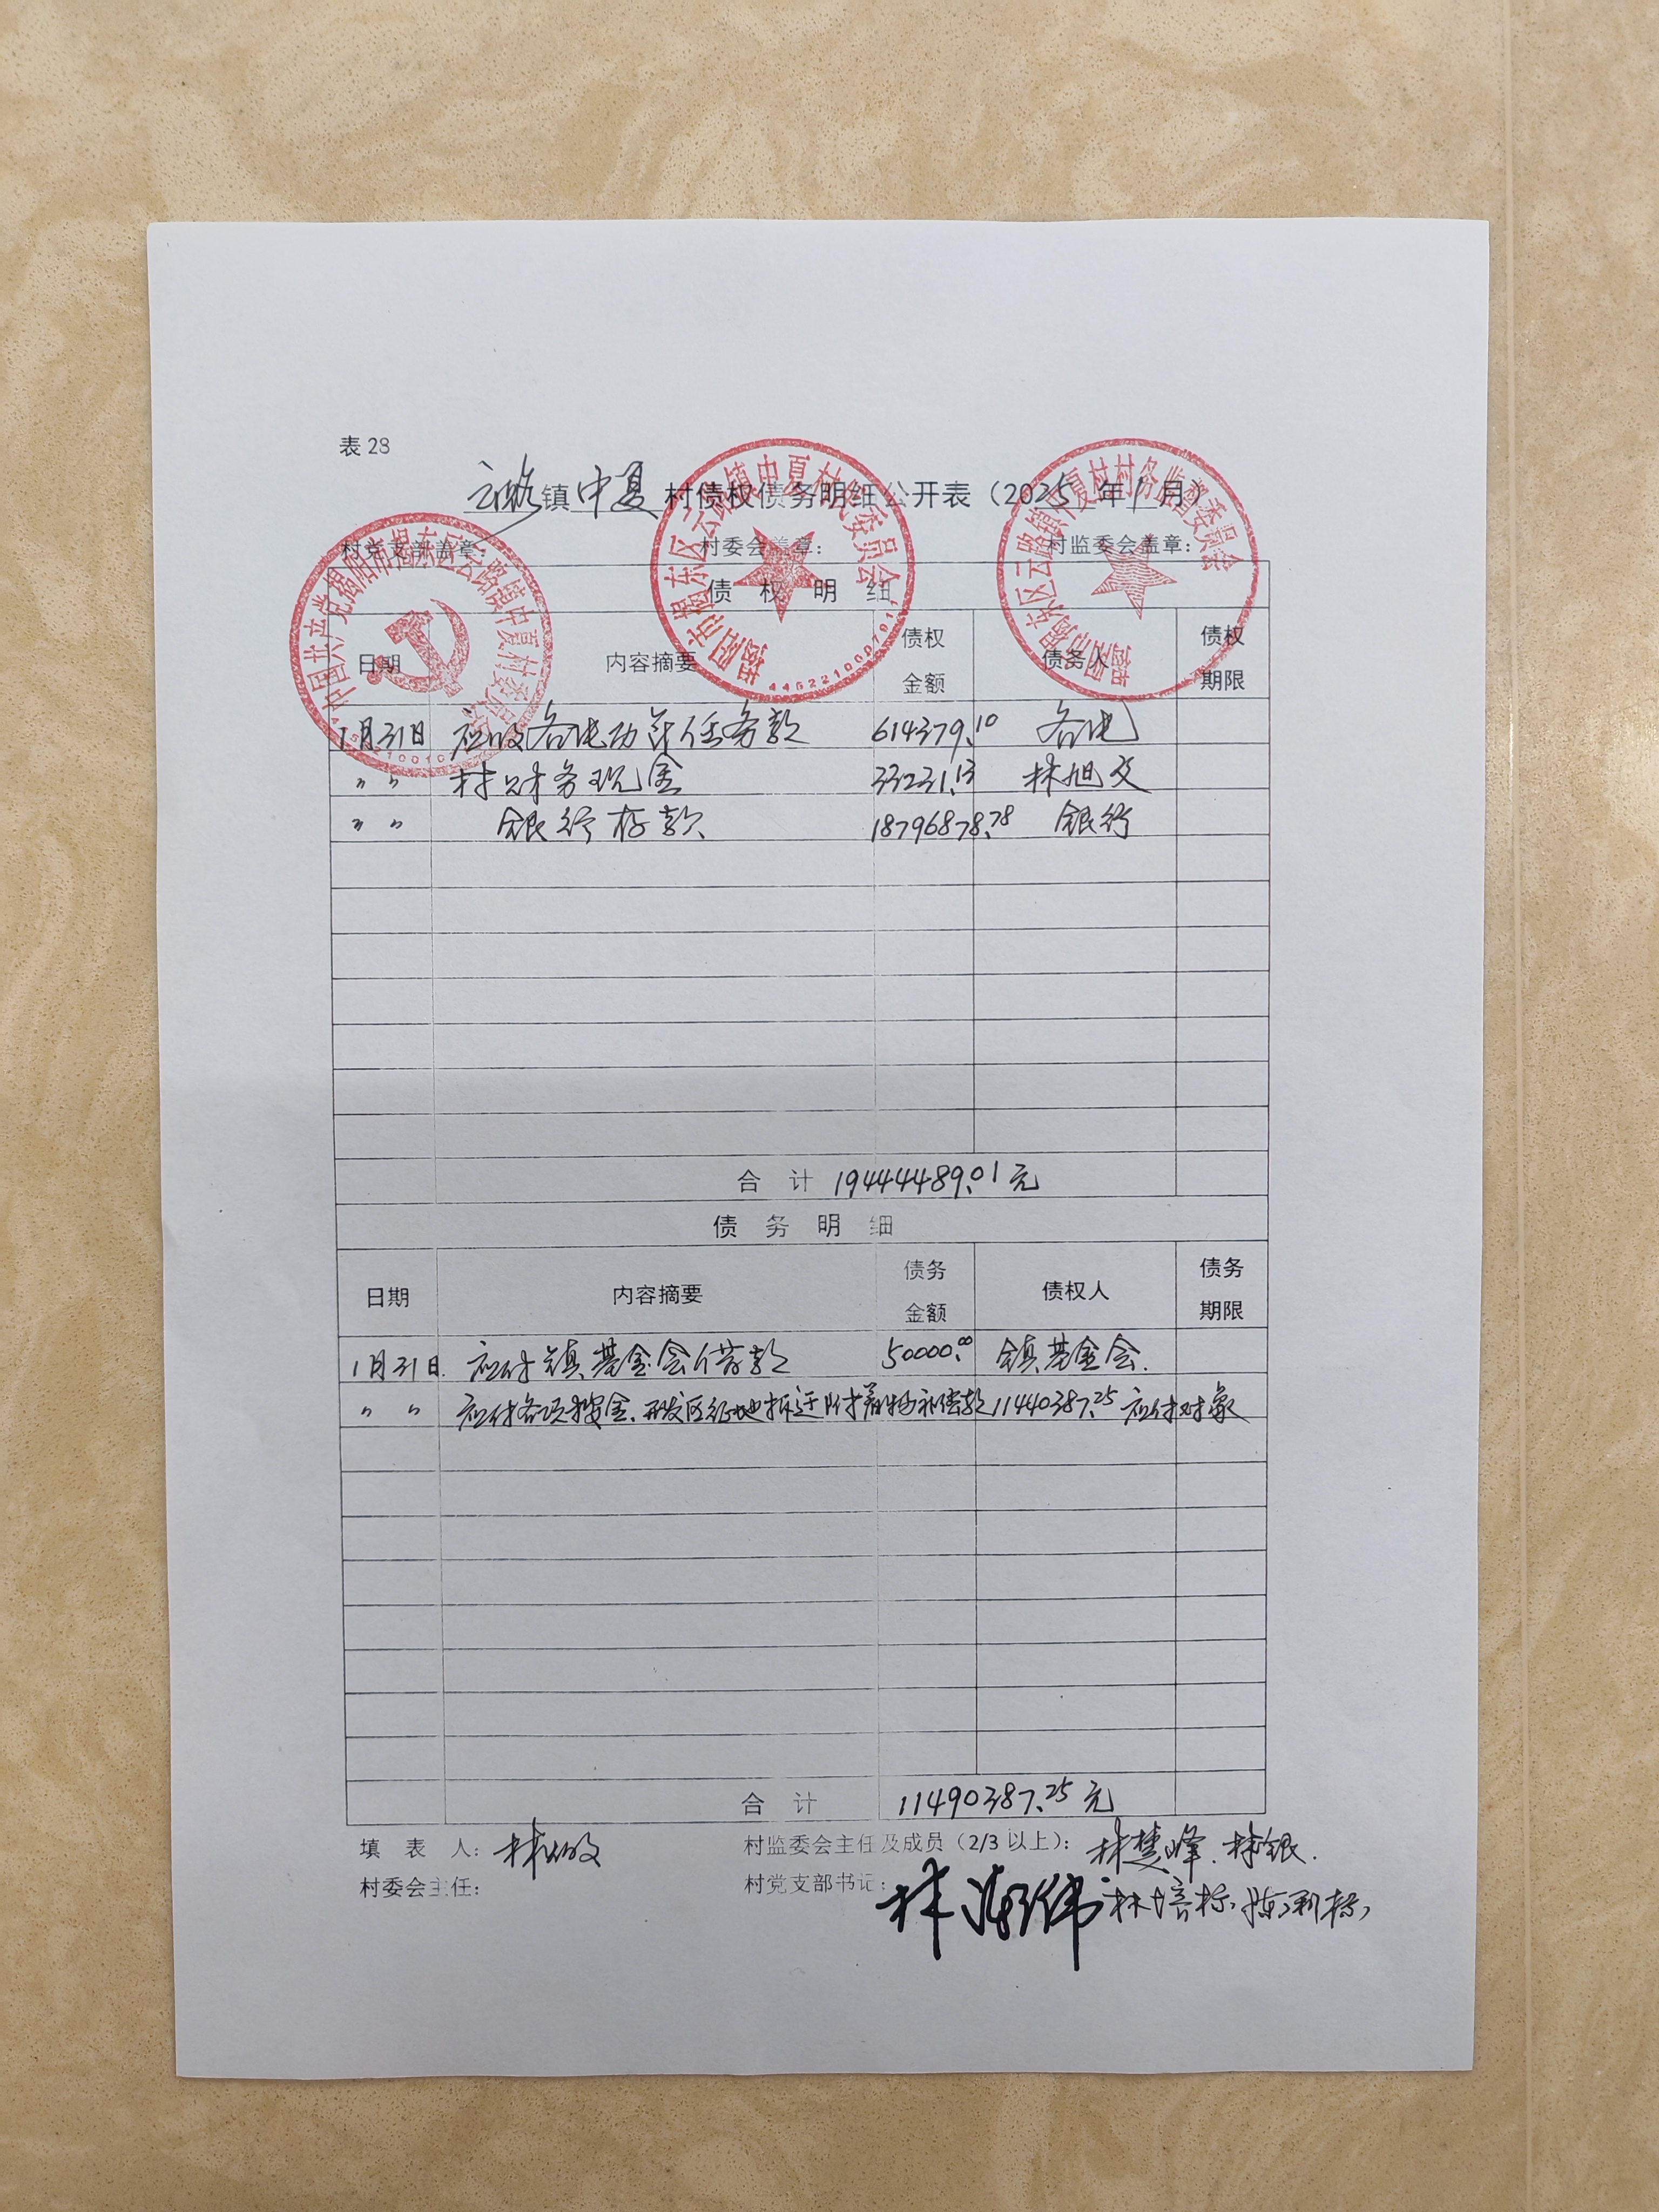 表 23
云路镇中夏村债权债务明细公开表（2025年1月）
村党支部盖章： 村委会盖章： 村监委会盖章：
中国共产党揭阳市揭东区云路镇中夏村委员会
揭阳市揭东区云路镇中夏村民委员会
揭阳市揭东区云路镇中夏村村务监督委员会
债权明细
日期 内容摘要 债权金额 债务人 债权期限
1月31日 应收各电功算任务款 614379.10 各电
〃 〃 村财务现金 33231.13 林旭文
〃 〃 银行存款 18796878.78 银行
合计 19444489.01元
债务明细
日期 内容摘要 债务金额 债权人 债务期限
1月31日. 应付镇基金会借款 50000.00 镇基金会.
〃 〃 应付各项押金、开发区征地拆迁附着物补偿款 11440387.25 应付对象
合计 11490387.25元
填表人： 林 村监委会主任及成员（2/3以上）： 林楚峰. 林银.
村委会主任： 村党支部书记： 林海伟 林培标, 陈利标,